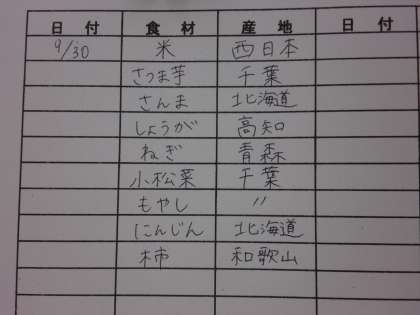 日付 食材 産地 日付
9/30 米 西日本
さつま芋 千葉
さんま 北海道
しょうが 高知
ねぎ 青森
小松菜 千葉
もやし 〃
にんじん 北海道
柿 和歌山